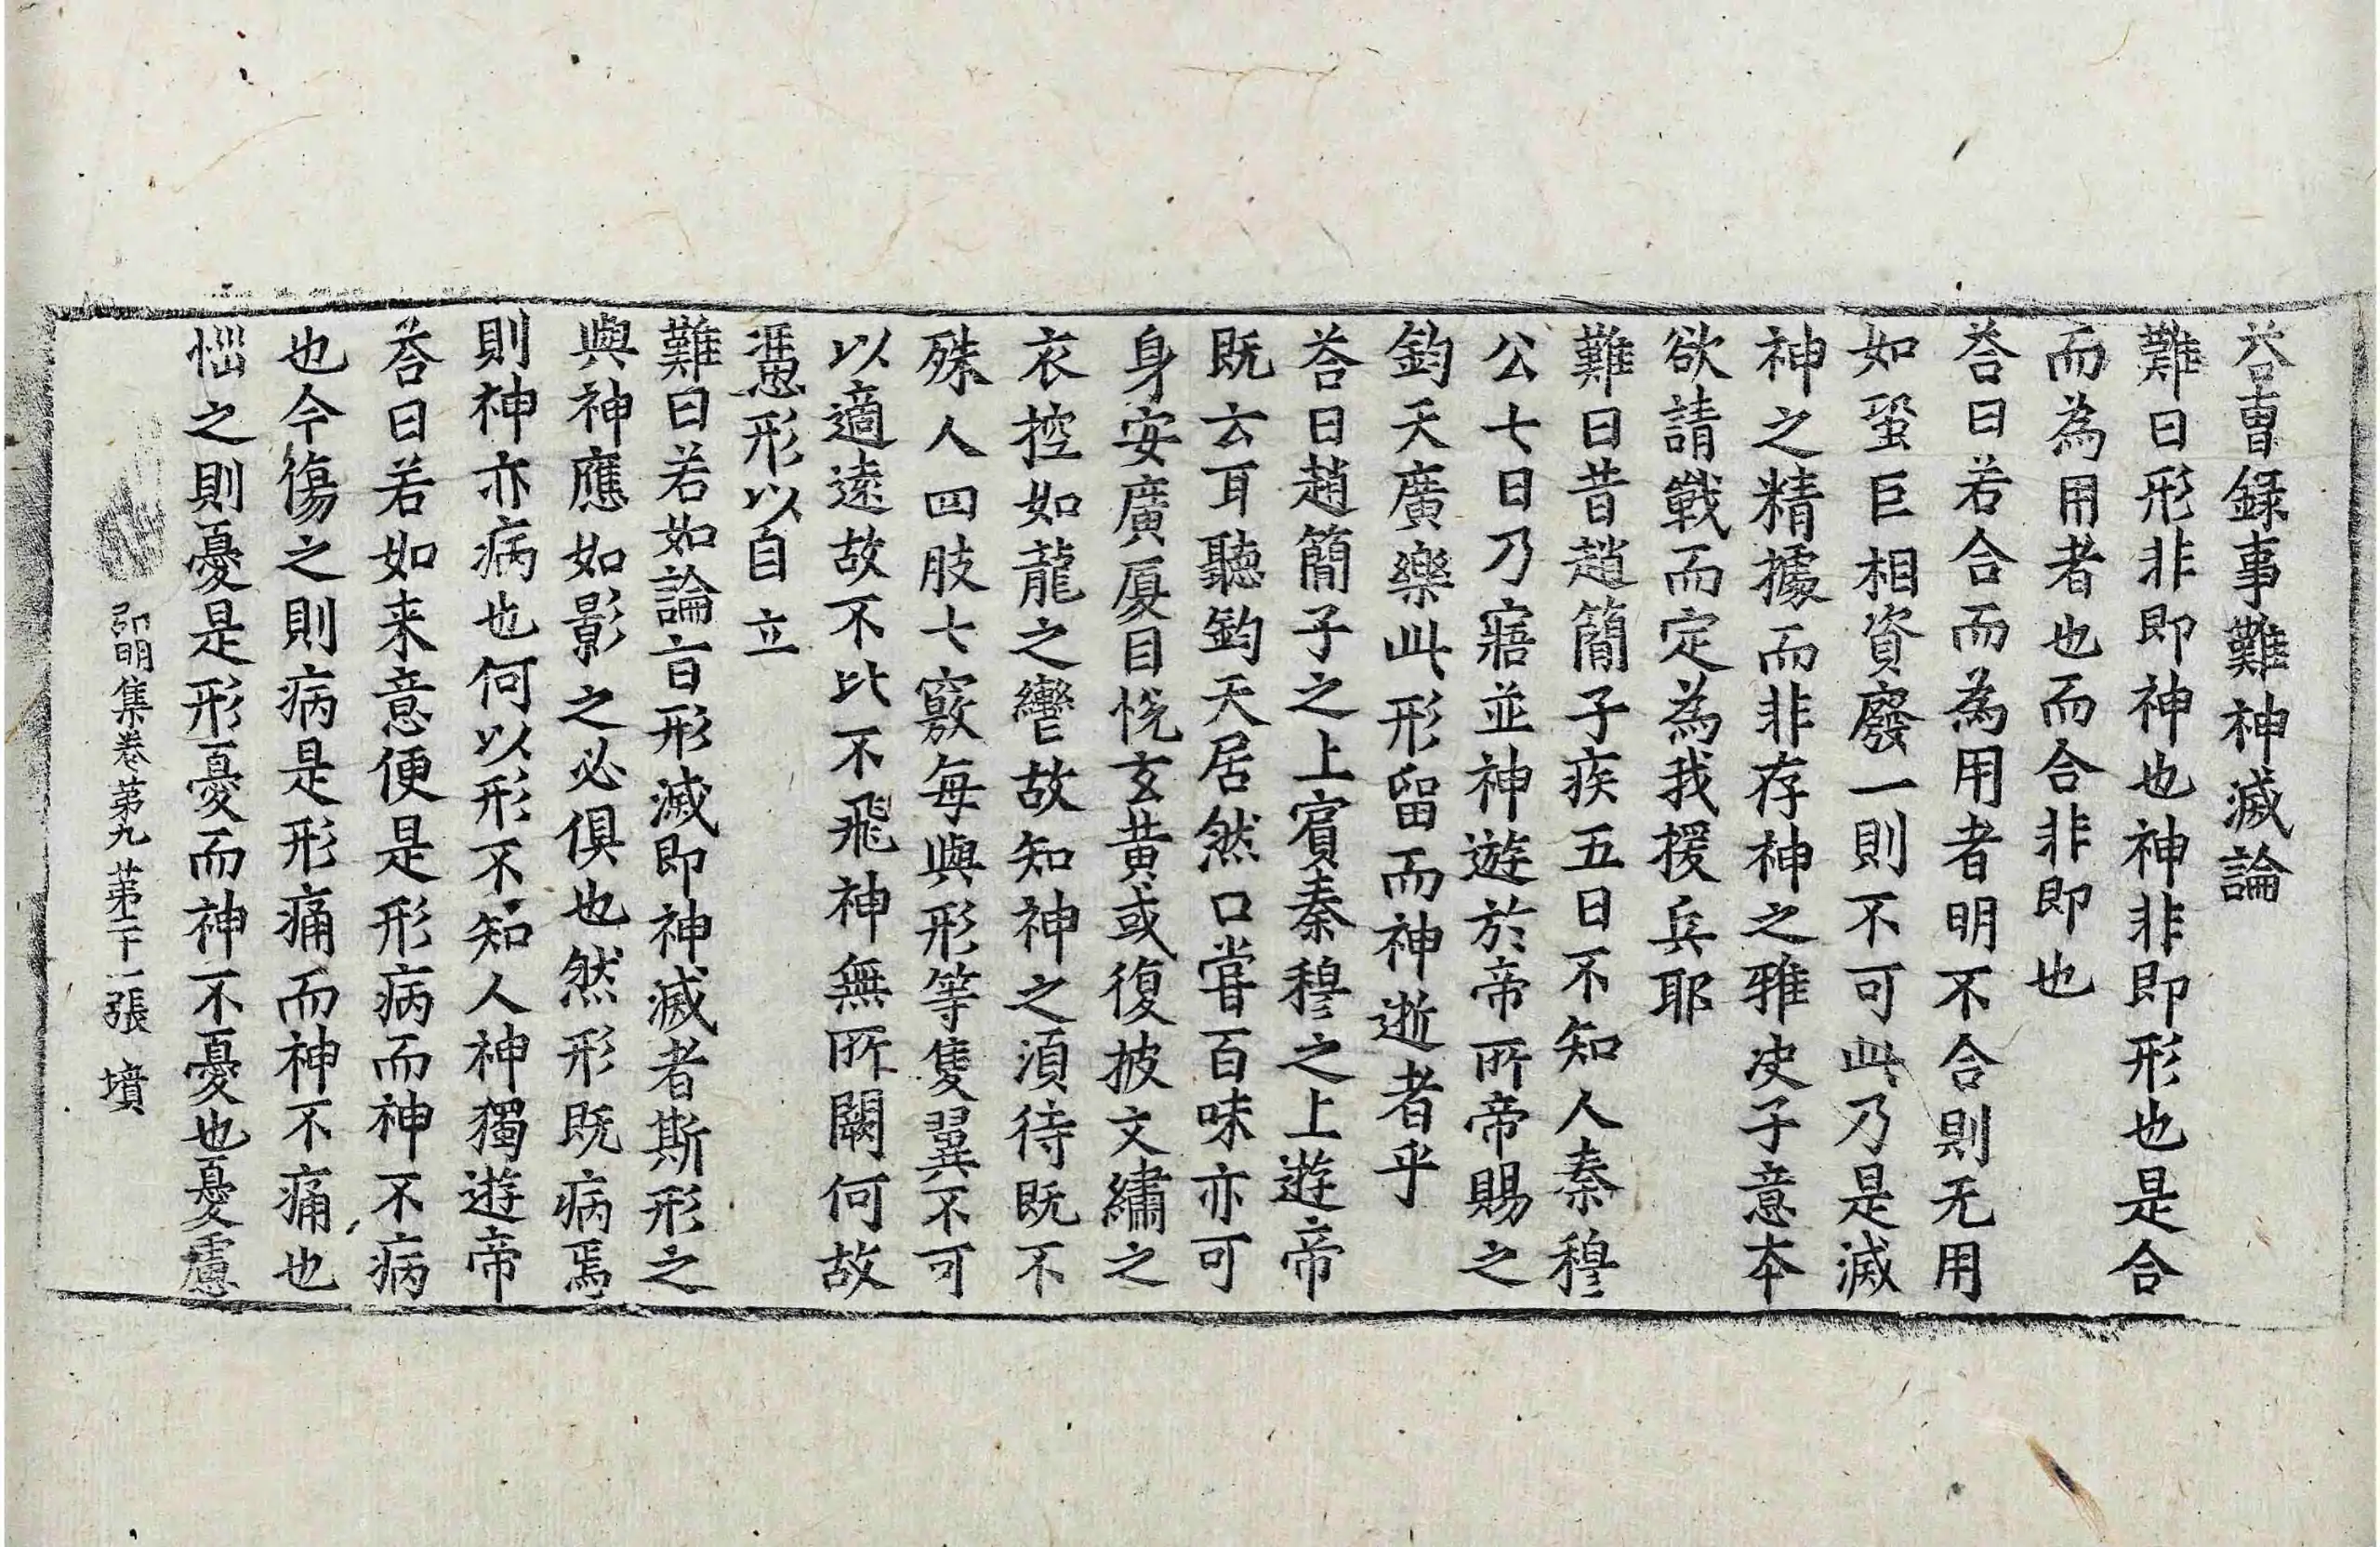 荅曹録事難神滅論
難曰形非即神也神非即形也是合
而為用者也而合非即也
荅曰若合而為用者明不合則无用
如蛩巨相資廢一則不可此乃是滅
神之精據而非存神之雅决子意本
欲請戰而定為我援兵耶
難曰昔趙簡子疾五日不知人秦穆
公七日乃寤並神遊於帝所帝賜之
鈞天廣樂此形留而神逝者乎
荅曰趙簡子之上賓秦穆之上遊帝
既云耳聽鈞天居然口甞百味亦可
身安廣厦目悦玄黄或復披文繡之
衣控如龍之轡故知神之湏待既不
殊人四肢七竅每與形等隻翼不可
以適遠故不比不飛神無所闕何故
憑形以自立
難曰若如論言形滅即神滅者斯形之
與神應如影之必俱也然形既病焉
則神亦病也何以形不知人神獨遊帝
荅曰若如来意便是形病而神不病
也今傷之則病是形痛而神不痛也
惱之則憂是形憂而神不憂也憂慮
弘明集卷第九 第二十一張 墳